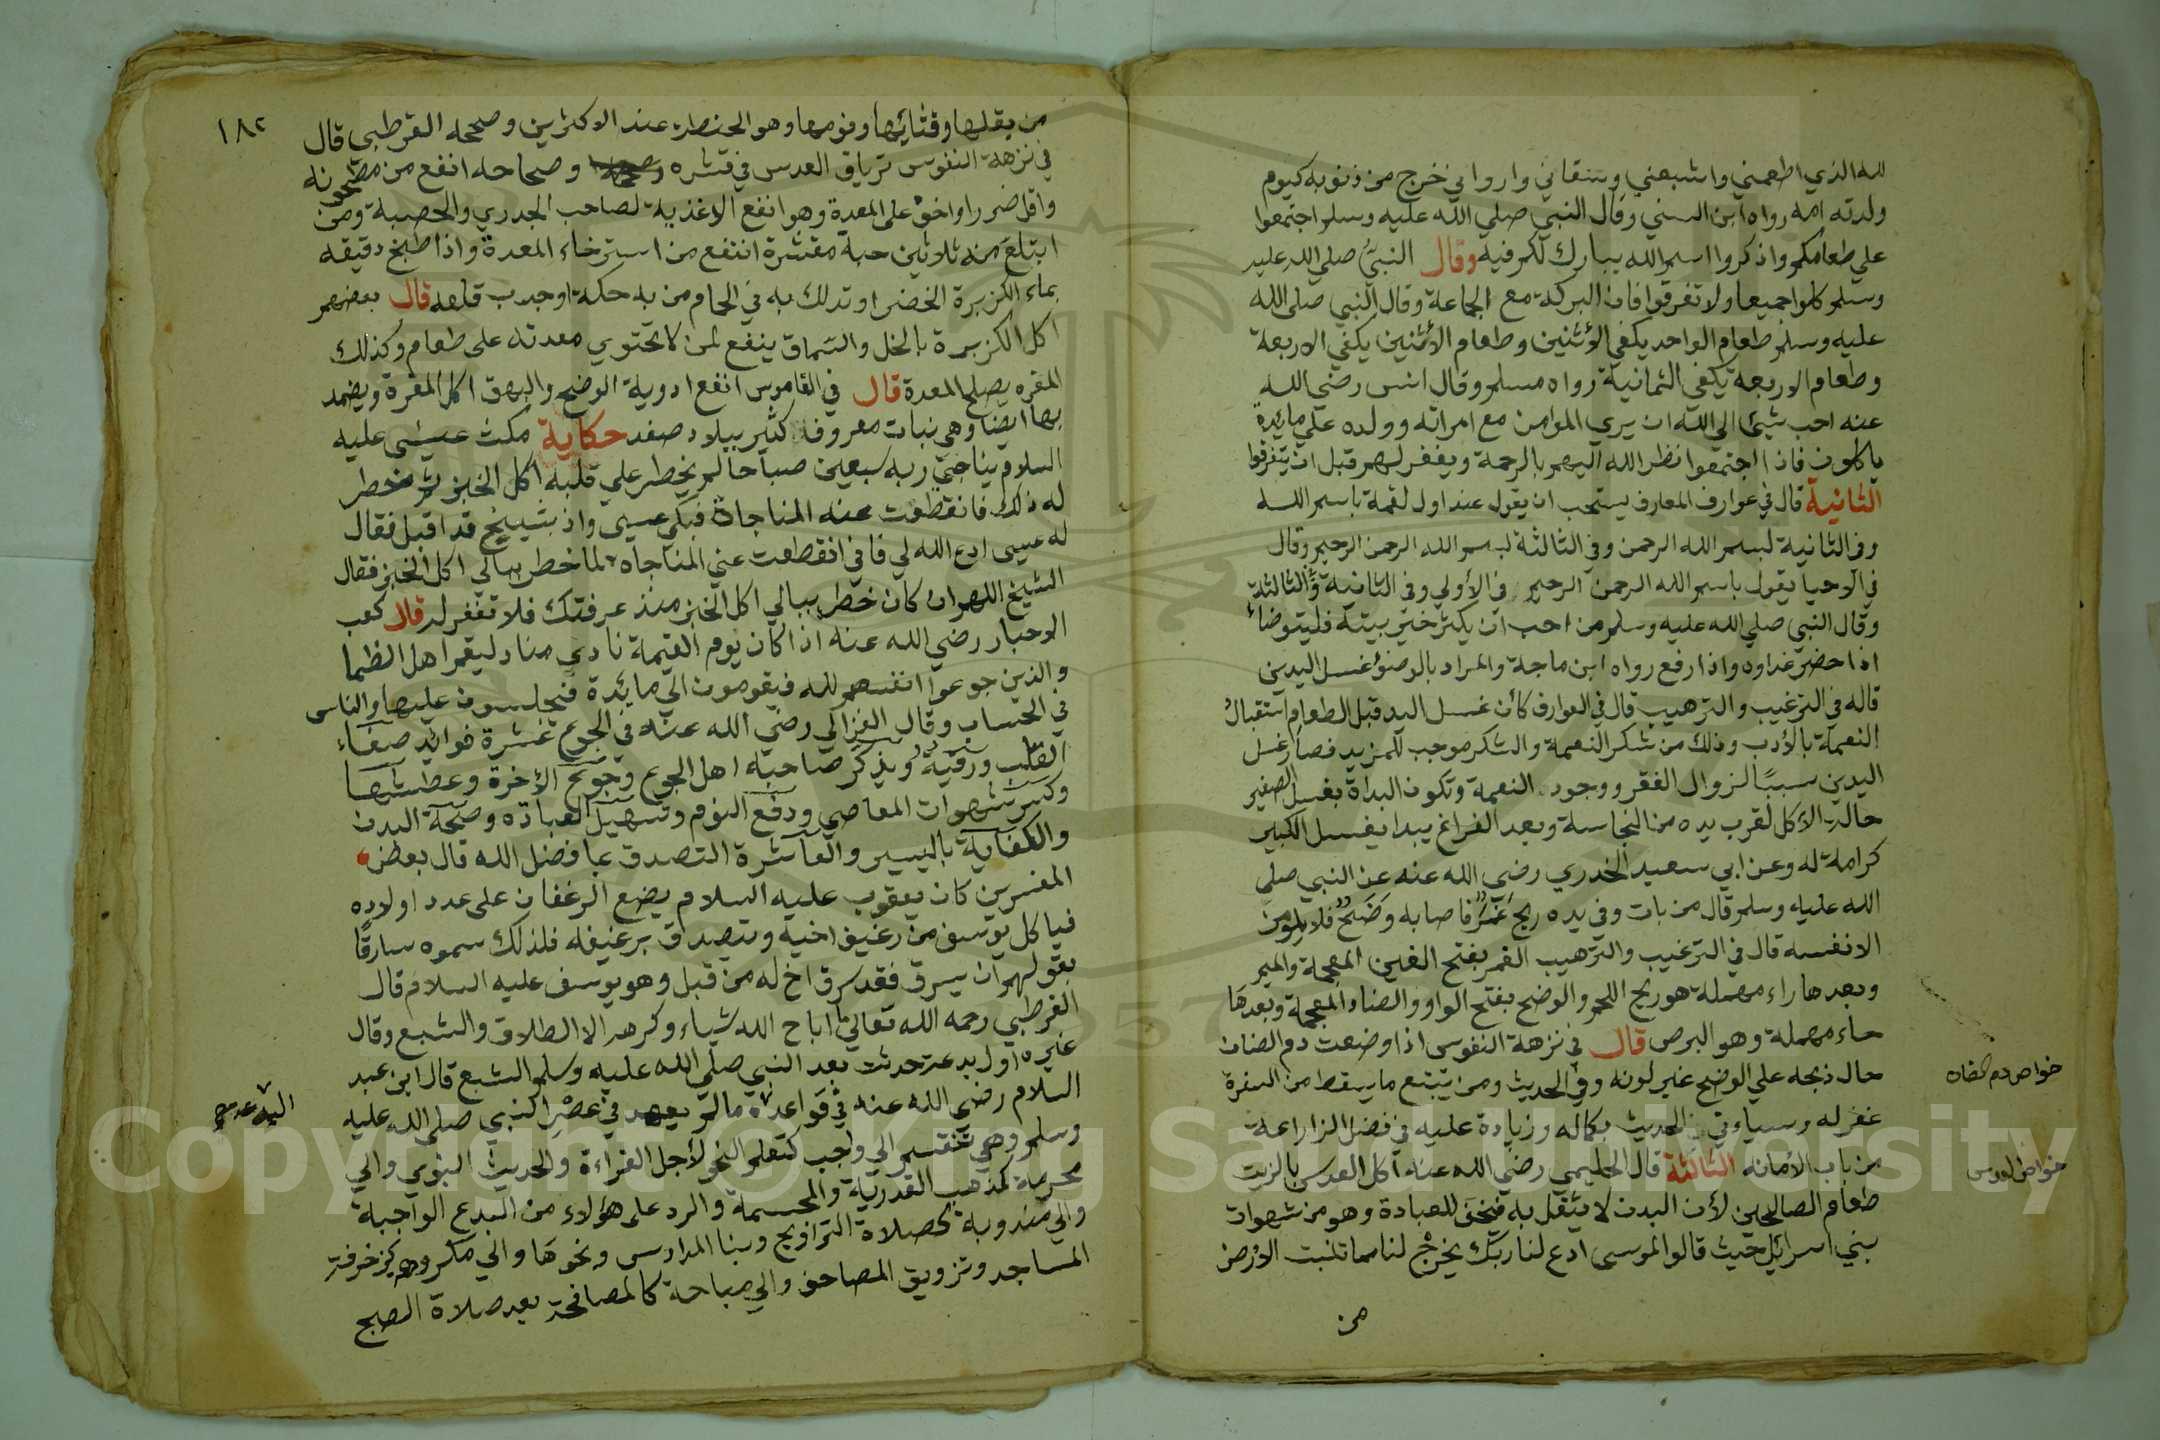 لله الذي اطعمني واشبعني وسقاني واروا ني خرج من ذنوبه كيوم
ولدته امه رواه ابن السني وقال النبي صلي الله عليه وسلم اجتمعوا
علي طعامكم واذكروا اسم الله يبارك لكم فيه وقال النبي صلي الله عليه
وسلم كلوا جميعا ولا تفرقوا فان البركة مع الجماعة وقال النبي صلى الله
عليه وسلم طعام الواحد يكفي الاثنين وطعام الاثنين يكفي الاربعة
وطعام الاربعة يكفي الثمانية رواه مسلم وقال انس رضي الله
عنه احب شيئ الي الله ان يري المؤمن مع امراته وولده علي مائدة
ياكلون فاذا اجتمعوا نظر الله اليهم بالرحمة ويغفر لهم قبل ان يتفرقوا
الثانية قال في عوارف المعارف يستحب ان يقول عند اول لقمة باسم الله
وفي الثانية بسم الله الرحمن وفي الثالثة بسم الله الرحمن الرحيم وقال
في الاحيا يقول باسم الله الرحمن الرحيم في الأولي وفي الثانية والثالثة
وقال النبي صلي الله عليه وسلم من احب ان يكثر خير بيته فليتوضأ
اذا حضر غداوه واذا رفع رواه ابن ماجة والمراد بالوضوء غسل اليدين
قاله في الترغيب والترهيب قال في العوارف كأن غسل اليد قبل الطعام استقبال
النعمة بالأدب وذلك من شكر النعمة والشكر موجب للمزيد فصار غسل
اليدين سببًا لزوال الفقر ووجود النعمة وتكون البداة بغسل الصغير
حالة الأكل لقرب يده من النجاسة وبعد الفراغ يبدا بغسل الكبير
كرامة له وعن ابي سعيد الخدري رضي الله عنه عن النبي صلي
الله عليه وسلم قال من بات وفي يده ريح غمر فاصابه وضح فلا يلومن
الا نفسه قال في الترغيب والترهيب الغمر بفتح الغين المعجمة والميم
وبعدها راء مهملة هو ريح اللحم والوضح بفتح الواو والضاد المعجمة وبعدها
حاء مهملة وهو البرص قال في نزهة النفوس اذا وضعت دم الضان
حال ذبحه علي الوضح غير لونه وفي الحديث ومن يتبتع ما يسقط من السفرة
غفر له وسياءتي الحديث بكماله وزيادة عليه في فضل الزراعة
من باب الأمانه الثالثة قال الحليمي رضي الله عنه اكل العدس بالزيت
طعام الصالحين لأن البدن لا يثقل به فتخف للعبادة وهو من شهوات
بني اسرائل حيث قالوا لموسى ادع لنا ربك يخرج لنا مما تنبت الارض
من
خواص دم الضان
خواص العدس
١٨٢
من بقلها وقثائها وفومها وهو الحنطة عند الاكثرين وصححه القرطبي قال
في نزهة النفوس ترياق العدس في قشره وصحاحه انفع من مطحونه
واقل ضررا واخف على المعدة وهو انفع الاغذية لصاحب الجدري والحصبة ومن
ابتلع منه ثلاثين حبة مقشرة انتفع من استرخاء المعدة واذا طبخ دقيقه
بماء الكزبرة الخضرا وتدلك به في الحمام من به حكة او جرب قلعه قال بعضهم
اكل الكزبرة بالخل والسماق ينفع لمن لا يحتوي معدته على طعام وكذلك
المقره يصلح المعدة قال في القاموس انفع ادوية الوضح والبهق اكل المقرة ويضمد
بها ايضا وهي نبات معروف كثير ببلاد صفد حكاية مكث عيسى عليه
السلام يناجي ربه سبعين صباحا لم يخطر علي قلبه اكل الخبز ثم خطر
له ذلك فانقطعت عنه المناجاة فبكي عيسي واذ بشييخ قد اقبل فقال
له عيسى ادع الله لي فاني انقطعت عني المناجاه لما خطر ببالي اكل الخبز فقال
الشيخ اللهم ان كان خطر ببالي اكل الخبز منذ عرفتك فلا تغفر لي قال كعب
الاحبار رضي الله عنه اذا كان يوم القيمة نادي مناد ليقم اهل الظما
والذين جوعوا انفسهم لله فيقومون الي مائدة فيجلسون عليها والناس
في الحساب وقال الغزالي رضي الله عنه في الجوع عشرة فوائد صفاء
القلب ورقيه ويذكر صاحبه اهل الجوع وجوع الأخرة وعطشها
وكسر شهوات المعاصي ودفع النوم وتسهيل العبادة وصحة البدن
والكفاية باليسير والعاشرة التصدق بما فضل الله قال بعض
المفسرين كان يعقوب عليه السلام يضع الرغفان على عدد اولاده
فياكل يوسف من رغيف اخيه ويتصدق برغيفه فلذلك سموه سارقًا
بقولهم ان يسرق فقد سرق اخ له من قبل وهو يوسف عليه السلام قال
القرطبي رحمه الله تعالي ما اباح الله شياء وكرهه الا الطلاق والشبع وقال
غيره اول بدعة حدثت بعد النبي صلي الله عليه وسلم الشبع قال ابن عبد
السلام رضي الله عنه في قواعده ما لم يعهد في عصر النبي صلى الله عليه
وسلم وهي تنقسم الي واجب كتعلم النحو لأجل القراءة والحديث النبوي والي
محرمة كمذهب القدرية والمجسمة والرد على هؤلاء من البدع الواجبة
والي مندوبة كصلاة التراويح وبنا المدارس ونحوها والي مكروهه كزخرفة
المساجد وتزويق المصاحف والي مباحة كالمصافحة بعد صلاة الصبح
البدعه
Copyright © King Saud University
1957